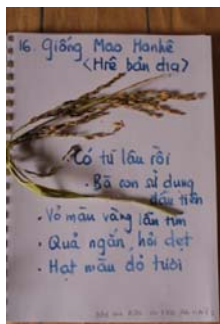 16. Giống Mao Hanhê
<Hrê bản địa>
Có từ lâu rồi
- Bà con sử dụng
đầu tiên
- Vỏ màu vàng lẫn tím
- Quả ngắn, hơi dẹt
- Hạt màu đỏ tươi